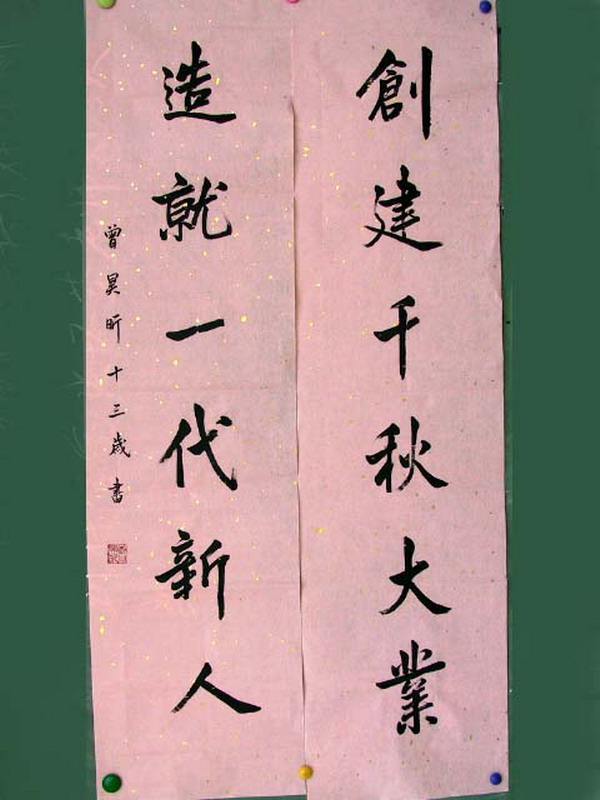 創建千秋大業
造就一代新人
曾昊昕十三歲書